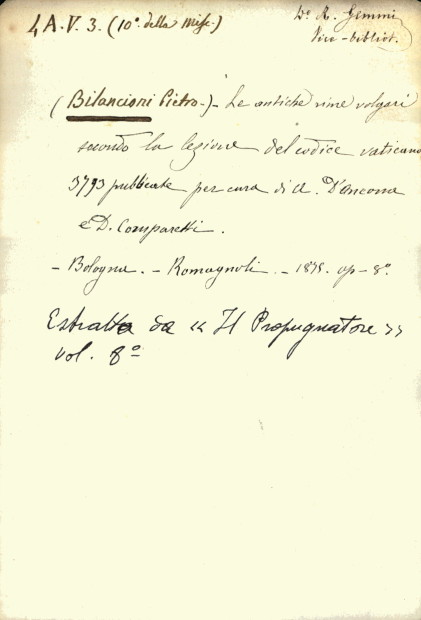 4 A. V. 3. (10º. della Misc.)
Dr. A. Gemmi
Vice-bibliot.
(Bilancioni Pietro.) - Le antiche rime volgari
secondo la lezione del codice vaticano
3793 pubblicate per cura di A. D'Ancona
e D. Comparetti.
- Bologna. - Romagnoli. - 1875. op - 8º.
Estratto da « Il Propugnatore »
vol. 8º